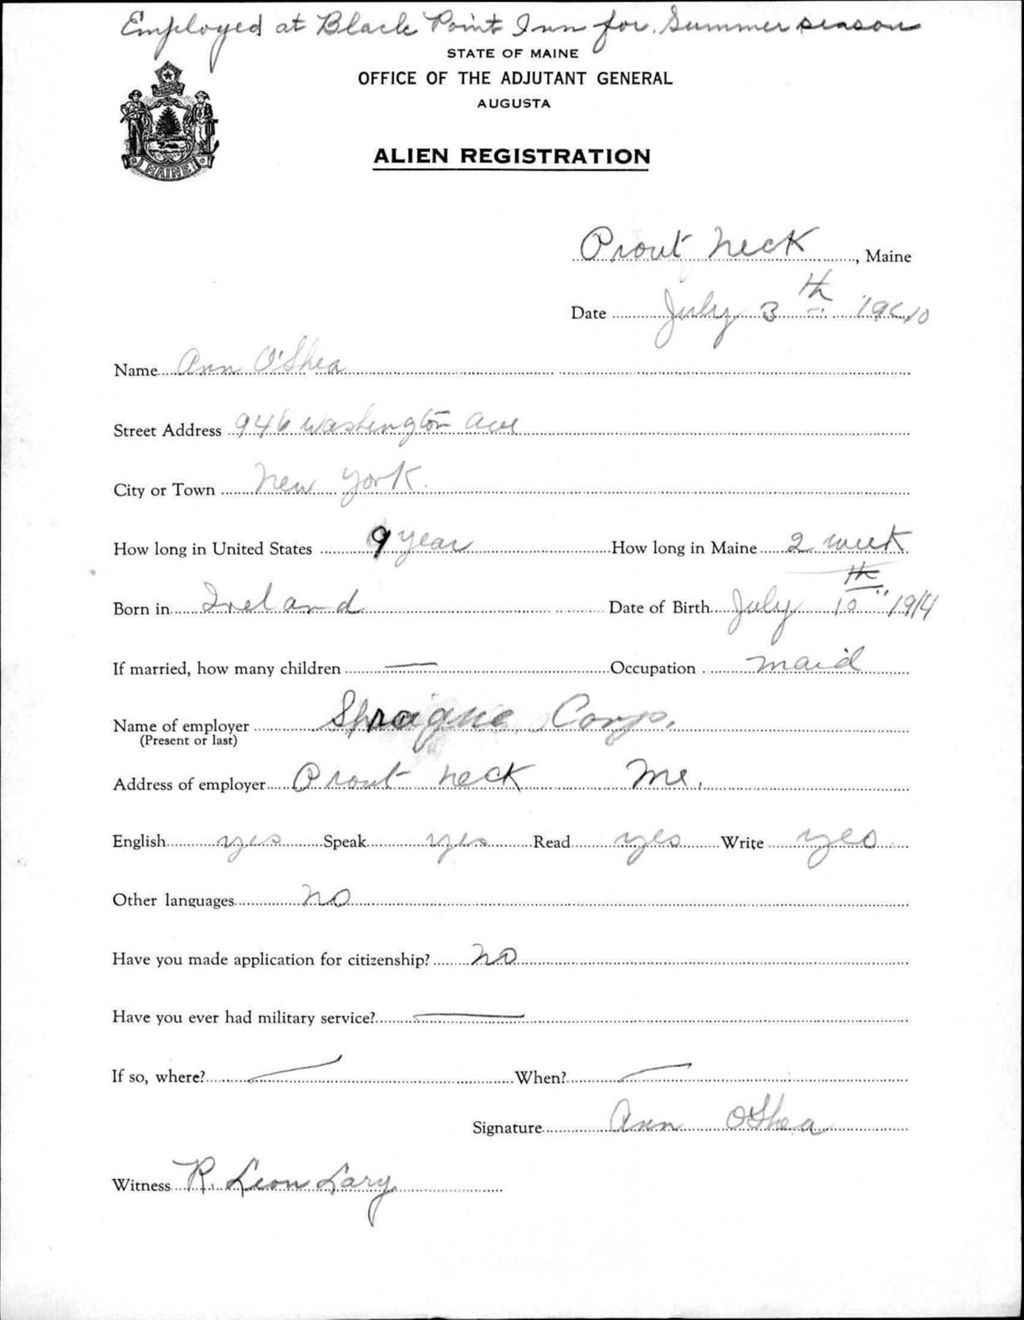 Employed at Black Point Inn for Summer season
STATE OF MAINE
OFFICE OF THE ADJUTANT GENERAL
AUGUSTA
MAINE
ALIEN REGISTRATION
Prout Neck, Maine
Date July 3th 1940
Name Ann O'Shea
Street Address 946 Washington Ave
City or Town New York.
How long in United States 9 year How long in Maine 2 week
Born in Ireland Date of Birth July 10th 1914
If married, how many children — Occupation maid
Name of employer Spraigue Corp.
(Present or last)
Address of employer Prout neck Me.
English yes Speak yes Read yes Write yes
Other languages no
Have you made application for citizenship? no
Have you ever had military service? —
If so, where? — When? —
Signature Ann OShea
Witness R. Leon Lary